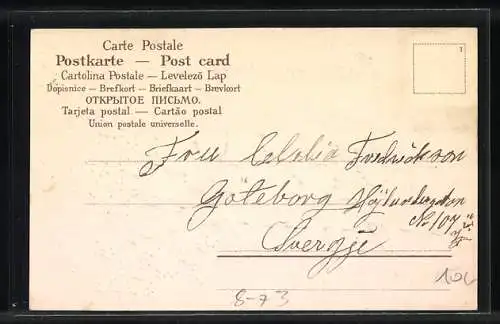 Carte Postale
Postkarte — Post card
Cartolina Postale — Levelező Lap
Dopisnice — Brefkort — Briefkaart — Brevkort
ОТКРЫТОЕ ПИСЬМО.
Tarjeta postal — Cartão postal
Union postale universelle.
1
Fru Fredrickson
Göteborg
No 107
Sverge
8-73